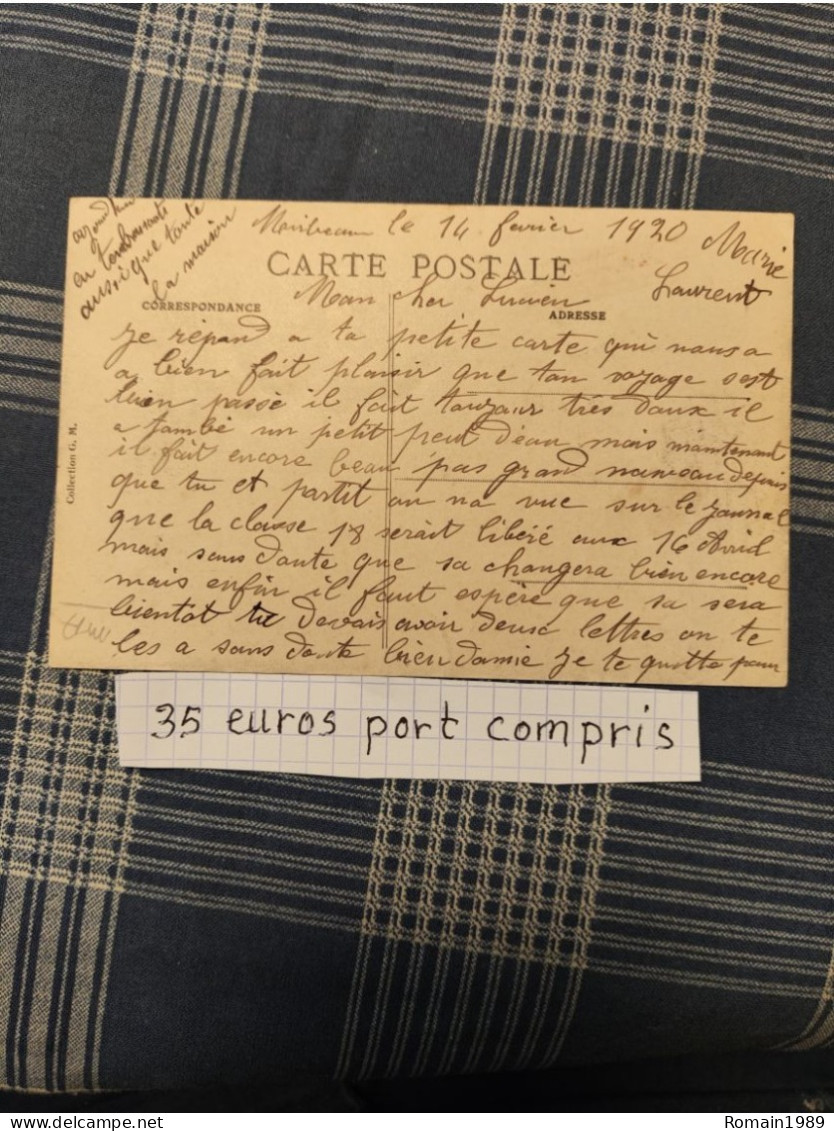 Miribeau le 14 fevrier 1920 Marie
Laurent
CARTE POSTALE
CORRESPONDANCE
ADRESSE
Mon cher Lucien
Je répond a ta petite carte qui nous a
a bien fait plaisir que ton voyage s'est
bien passé il fait toujour très doux il
a tombé un petit peut d'eau mais maintenant
il fait encore beau pas grand nouveau depuis
que tu et partit on na vue sur le journal
que la classe 18 serait libéré aux 16 Avril
mais sans doute que sa changera bien encore
mais enfin il faut espère que sa sera
bientot tu devais avoir deux lettres on te
les a sans doute bien damie je te quitte pour
aujourdhui
en tembrassant
aussi que toute
la maison
Collection G. M.
35 euros port compris
Romain1989